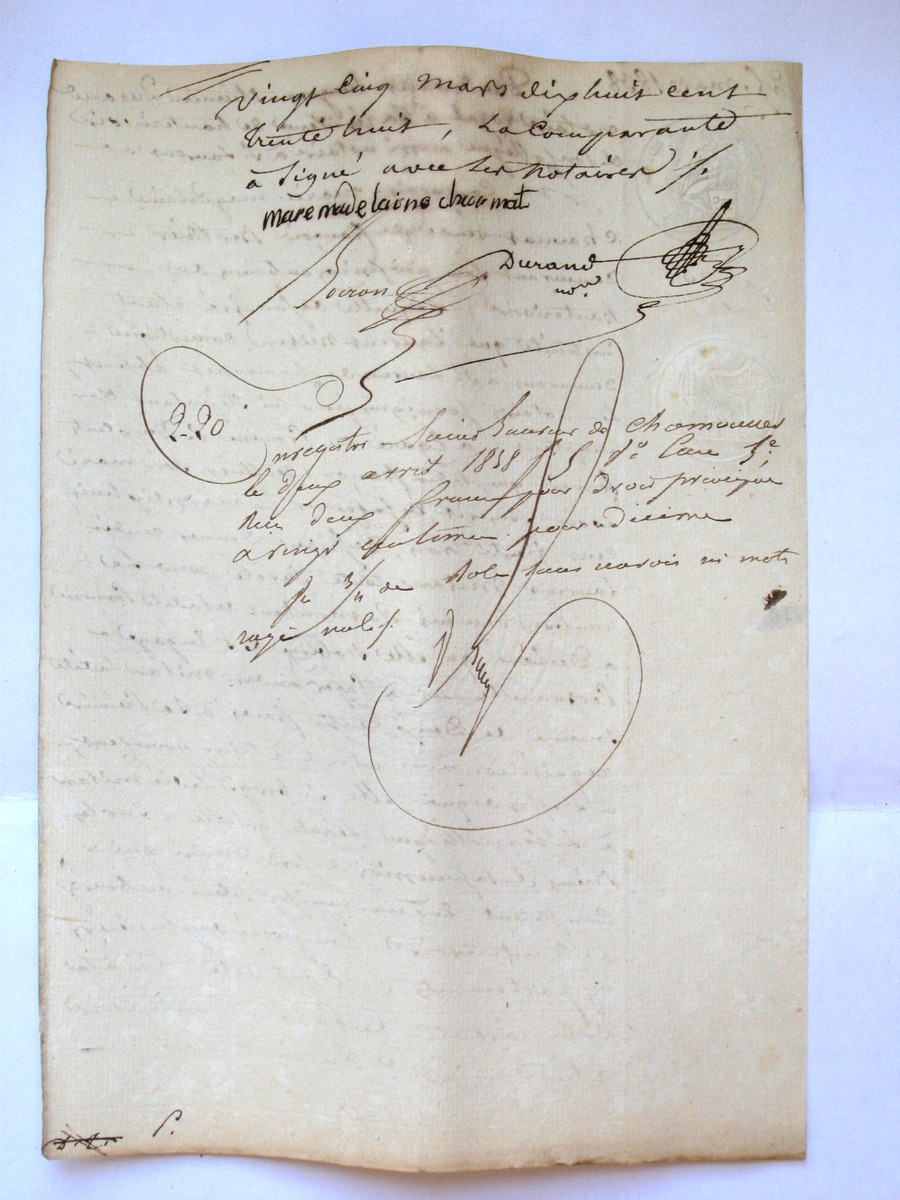 vingt cinq mars dix huit cent
trente huit, la Comparante
à Signé avec les notaires ./.
marie madelaine charmat
Durand
Bocron
nore
2-20
Enregistré à Saint Laurent de chamousset
le deux avril 1838 fo 5 Vo Case 5e,
deux francs pour droit principal
vingt centimes pour décime
3/4 de Role sans renvois ni mots
rayé nuls ./.